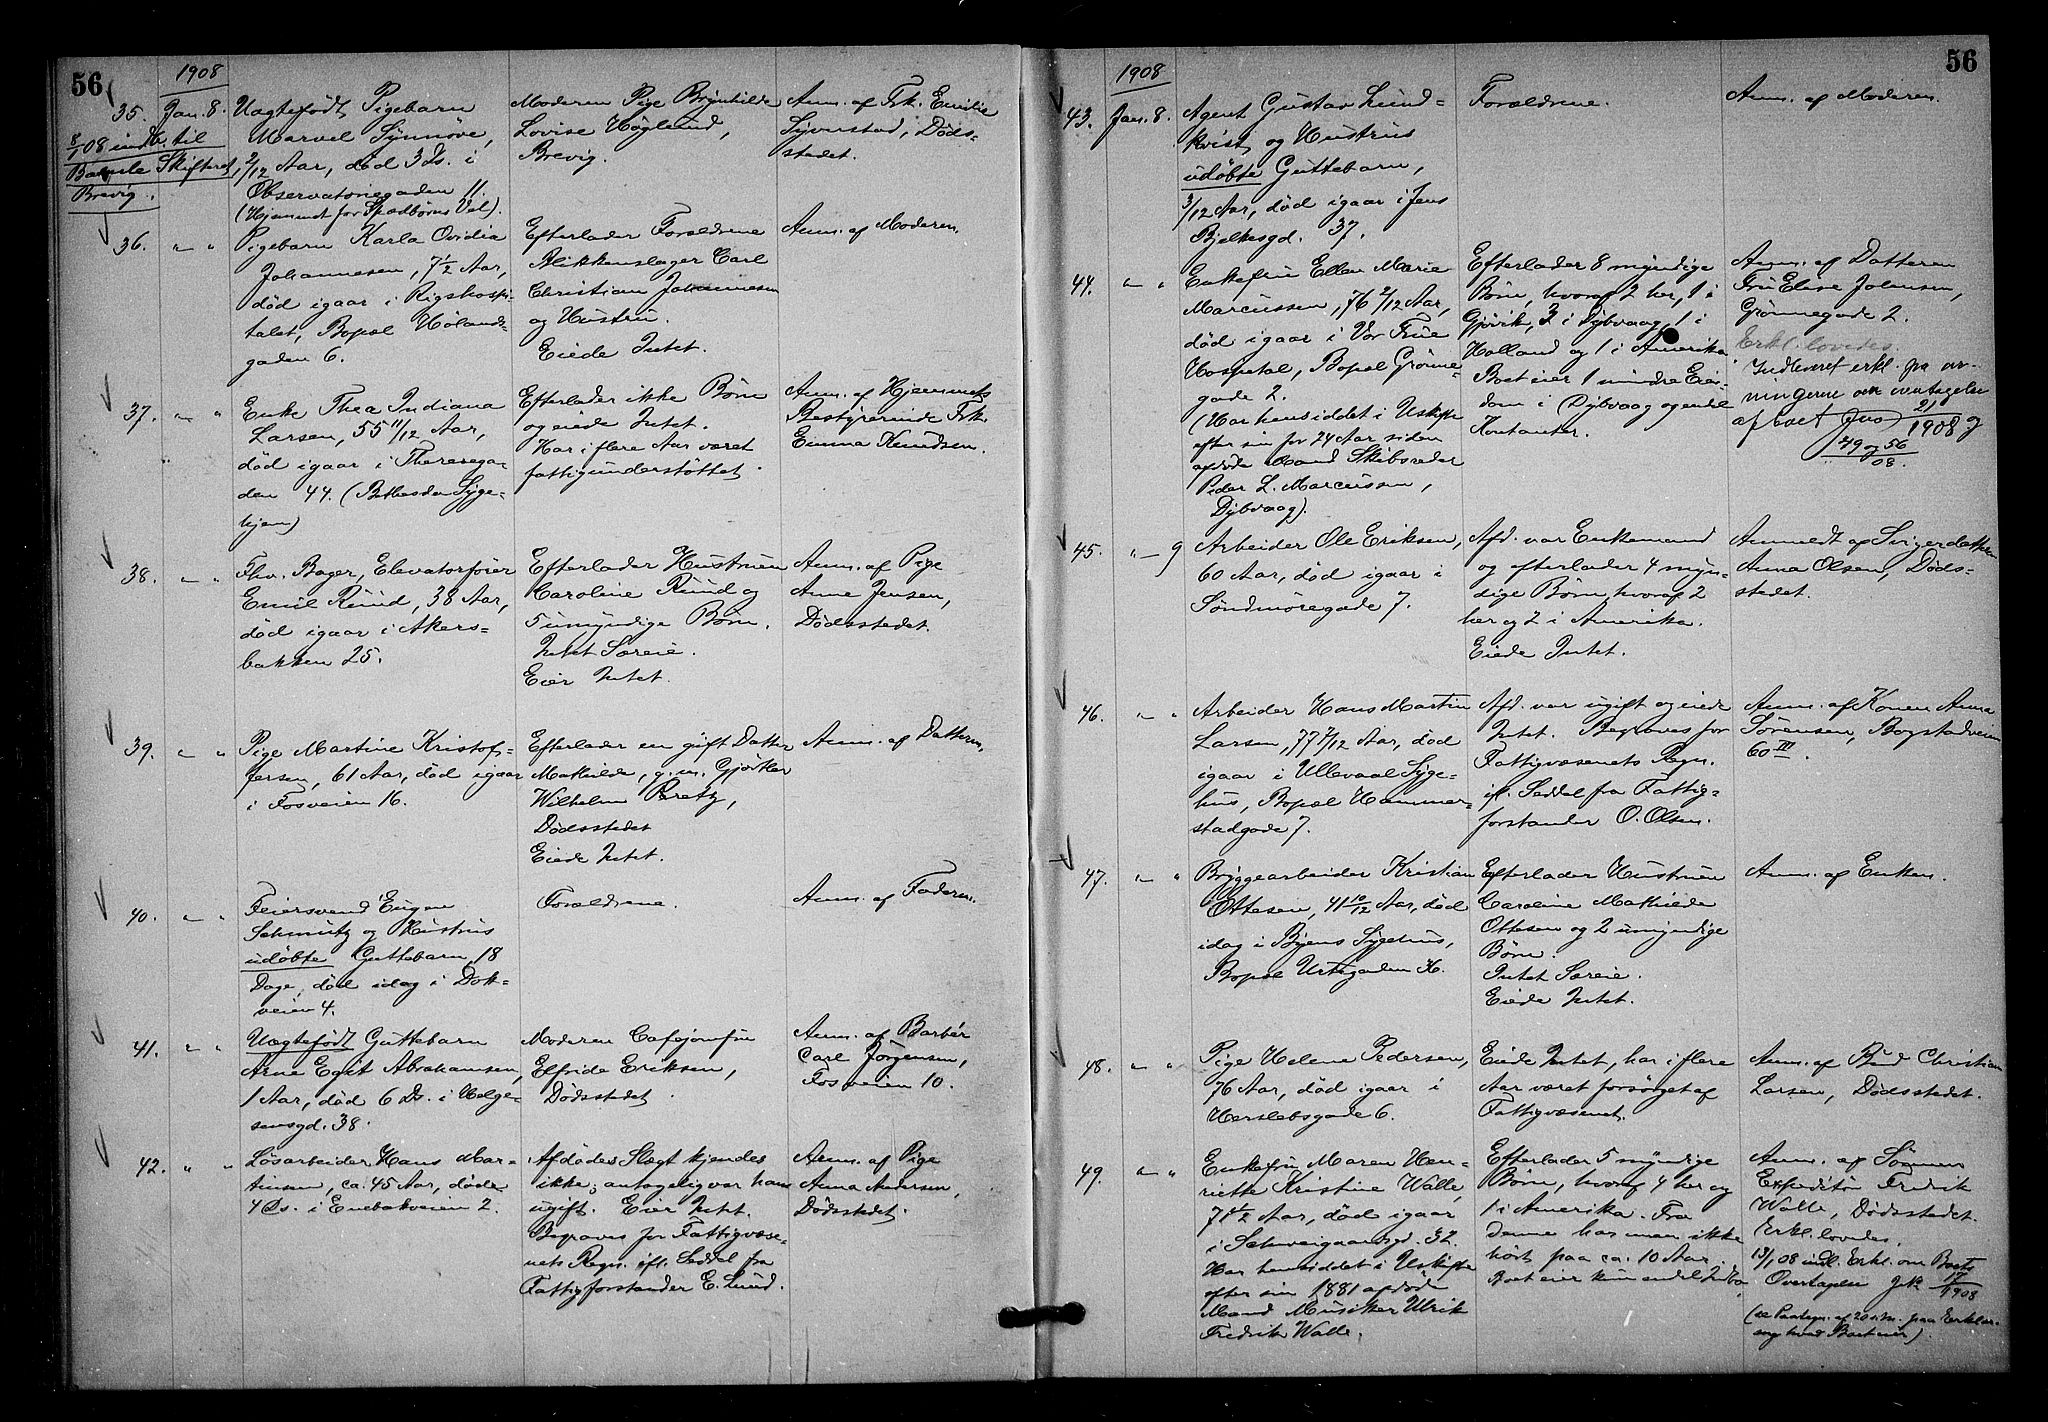 56
1908
35. Jan. 8. Uægtefødt Pigebarn
Marvel Synnøve,
2/12 Aar, død 3 ds. i
Observatoriegaden 11.
(Hjemmet for Spædbørns Vel).
8/1 08 indb. til
Bamle Skifteret,
Brevig.
Moderen Pige Brynhilde
Lovise Høglund,
Brevig.
Anm. af Frk. Emilie
Syverstad, Døds-
stedet.
36. " " Pigebarn Karla Ovidia
Johannesen, 7 1/2 Aar,
død igaar i Rigshospi-
talet, Bopæl Hølands-
gaden 6.
Efterlader Forældrene
Blikkenslager Carl
Christian Johannesen
og Hustru.
Eiede Intet.
Anm. af Moderen.
37. " " Enke Thea Indiana
Larsen, 55 11/12 Aar,
død igaar i Theresega-
den 44. (Bethesda Syge-
hjem)
Efterlader ikke Børn
og eiede Intet.
Har i flere Aar været
fattigunderstøttet.
Anm. af Hjemmets
Bestyrerinde Frk.
Emma Knudsen.
38. " " Fhv. Bager, Elevatorfører
Emil Ruud, 38 Aar,
død igaar i Akers-
bakken 25.
Efterlader Hustruen
Caroline Ruud og
5 umyndige Børn.
Intet Særeie.
Eier Intet.
Anm. af Pige
Anne Jensen,
Dødsstedet.
39. " " Pige Martine Kristof-
fersen, 61 Aar, død igaar
i Fosveien 16.
Efterlader en gift Datter
Mathilde, g. m. Gjørtler
Wilhelm Peretz,
Dødsstedet
Eiede Intet.
Anm. af Datteren.
40. " " Feiersvend Eugen
Schmutz og Hustrus
udøbte Guttebarn, 18
Dage, død idag i Dob-
veien 4.
Forældrene.
Anm. af Faderen.
41. " " Uægtefødt Guttebarn
Arne Egit Abrahamsen,
1 Aar, død 6 Ds. i Helge-
sensgd. 38.
Moderen Cafejomfru
Elfride Eriksen,
Dødsstedet.
Anm. af Barbér
Carl Jørgensen,
Fosveien 10.
42. " " Løsarbeider Hans Mar-
tinsen, ca. 45 Aar, døde
4 Ds. i Enebakveien 2.
Afdødes Slægt kjendes
ikke; antagelig var han
ugift. Eier Intet.
Begraves for Fattigvæse-
nets Regn. ifl. Seddel fra
Fattigforstander E. Lund.
Anm. af Pige
Anna Andersen,
Dødsstedet.
56
1908
43. Jan. 8. Agent Gustav Lund-
kvist og Hustrus
udøbte Guttebarn,
3/12 Aar, død igaar i Jens
Bjelkesgd. 37.
Forældrene.
Anm. af Moderen.
44. " " Enkefru Ellen Marie
Marcussen, 76 2/12 Aar,
død igaar i Vor Frue
Hospital, Bopæl Grønne-
gade 2.
(Har hensiddet i Uskifte
efter sin for 24 Aar siden
afdøde Mand Skibsreder
Peder L. Marcussen,
Dybvaag).
Efterlader 8 myndige
Børn, hvoraf 2 her, 1 i
Gjøvik, 3 i Dybvaag, 1 i
Holland og 1 i Amerika.
Boet eier 1 mindre Eien-
dom i Dybvaag og endel
Kontanter.
Anm. af Datteren
Fru Elise Johansen,
Grønnegade 2.
Erkl. lovedes.
Indleveret erkl. fra ar-
vingerne om overtagelse
af boet 21/1 1908 og
49 og 56/08.
45. " 9 Arbeider Ole Eriksen,
60 Aar, død igaar i
Søndmøregade 7.
Afd. var Enkemand
og efterlader 4 myn-
dige Børn, hvoraf 2
her og 2 i Amerika.
Eiede Intet.
Anmeldt af Svigerdatteren
Anna Olsen, Døds-
stedet.
46. " " Arbeider Hans Martin
Larsen, 77 7/12 Aar, død
igaar i Ullevaal Syge-
hus, Bopæl Hammer-
stadgade 7.
Afd. var ugift og eiede
Intet. Begraves for
Fattigvæsenets Regn.
ifl. Seddel fra Fattig-
forstander O. Olsen.
Anm. af Konen Anna
Sørensen, Bogstadveien
60 III.
47. " " Bryggearbeider Kristian
Ottesen, 41 10/12 Aar, død
idag i Byens Sygehus,
Bopæl Urtegaden
Efterlader Hustruen
Caroline Mathilde
Ottesen og 2 umyndige
Børn.
Intet Særeie.
Eiede Intet.
Anm. af Enken.
48. " " Pige Helene Pedersen,
76 Aar, død igaar i
Herslebsgade 6.
Eiede Intet, har i flere
Aar været forsørget af
Fattigvæsenet.
Anm. af Bud Christian
Larsen, Dødsstedet.
49. " " Enkefru Maren Hen-
riette Kristine Walle,
71 1/2 Aar, død igaar
i Schweigaardsgd. 32.
Har hensiddet i Uskifte
efter sin 1881 afdøde
Mand Musiker Ulrik
Fredrik Walle.
Efterlader 5 myndige
Børn, hvoraf 4 her og
1 i Amerika. Fra
denne har man ikke
hørt paa ca. 10 Aar.
Boet eier kun endel Indbo.
Anm. af Sønnen
Expeditør Fredrik
Walle, Dødsstedet.
Erkl. lovedes.
13/1 08 indl. Erkl. om Boets
Overtagelse 17/1 1908
(se Paategn. af 20 s. m. paa Erklær-
ing hvad Boet eier).